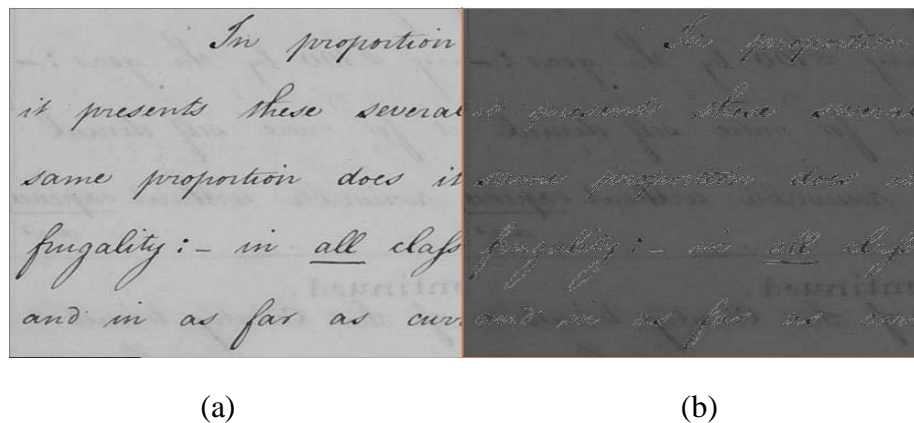 In proportion
it presents these several
same proportion does it
frugality :- in all class
and in as far as curr
In proportion
it presents these several
same proportion does
frugality :- in all class
and in as far as
(a) (b)